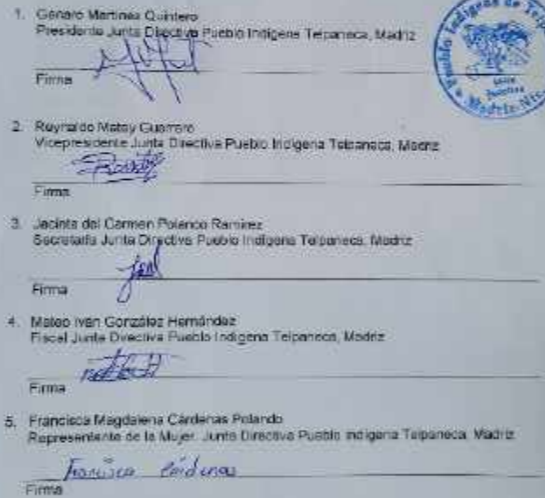 1. Genaro Martinez Quintero
Presidente Junta Directiva Pueblo Indigena Telpaneca, Madriz
Firma
2. Reynaldo Matey Guerrero
Vicepresidente Junta Directiva Pueblo Indigena Telpaneca, Madriz
Firma
3. Jacinta del Carmen Polanco Ramirez
Secretaria Junta Directiva Pueblo Indigena Telpaneca, Madriz
Firma
4. Mateo Iván González Hernández
Fiscal Junta Directiva Pueblo Indigena Telpaneca, Madriz
Firma
5. Francisca Magdalena Cárdenas Polando
Representante de la Mujer. Junta Directiva Pueblo Indigena Telpaneca, Madriz
Francisca Cárdenas
Firma
Pueblo Indigena de
Madriz